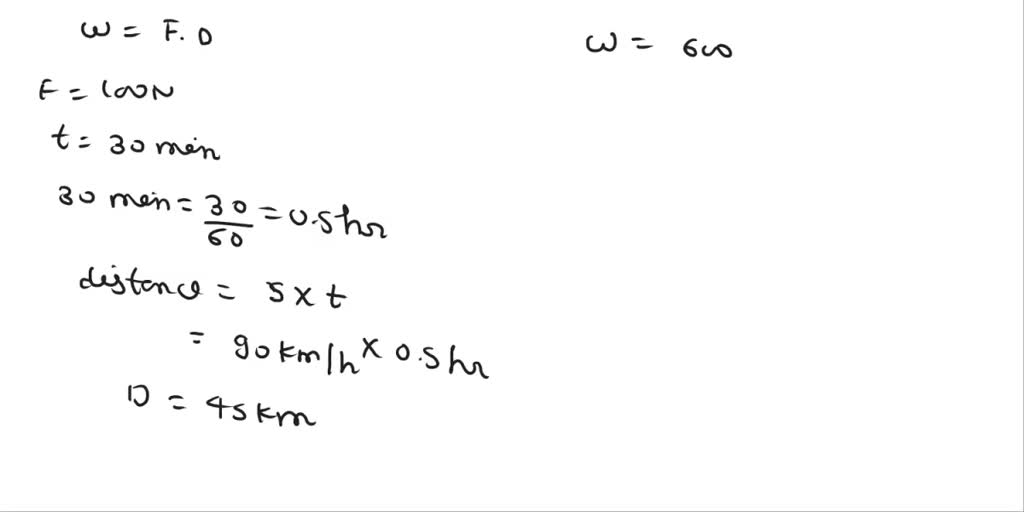 W = F. D
F = 100N
t = 30 min
30 min = 30/60 = 0.5hr
distance = s x t
= 90 km/h x 0.5 hr
D = 45 km
W = 600